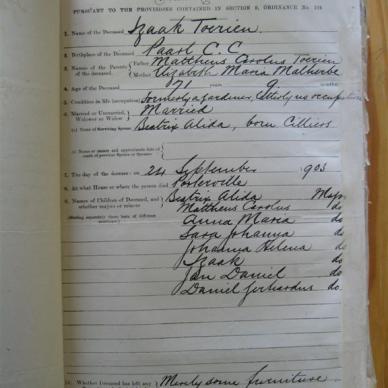 PURSUANT TO THE PROVISIONS CONTAINED IN SECTION 9, ORDINANCE No. 104
1. Name of the Deceased Izaak Toerien.
2. Birthplace of the Deceased Paarl C. C.
3. Names of the Parents of the deceased. Father Mattheus Carolus Toerien
Mother Elizabeth Maria Malherbe
4. Age of the Deceased 71 years 9 months
5. Condition in life (occupation) formerly a gardener, latterly no occupation
6. Married or Unmarried, Widower or Widow Married
(a) Name of Surviving Spouse Beatrix Alida, born Cilliers
(b) Name or names and approximate date of death of previous Spouse or Spouses
7. The day of the decease on 24 September 1903
8. At what House or where the person died Porterville
9. Names of Children of Deceased, and whether majors or minors Beatrix Alida Major
Mattheus Carolus do
Anna Maria do
Sara Johanna do
Johanna Helena do
Izaak do
Jan Daniel do
Daniel Gerhardus do
Whether Deceased has left any Merely some furniture